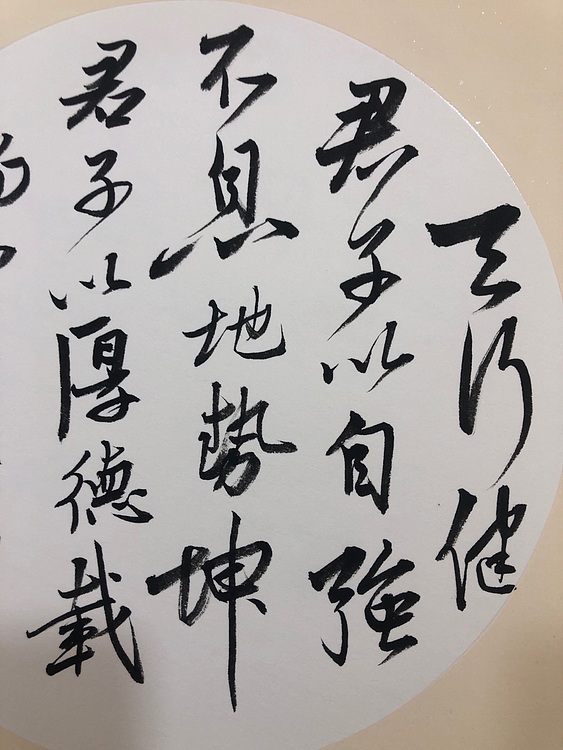 天行健
君子以自強
不息地勢坤
君子以厚德載